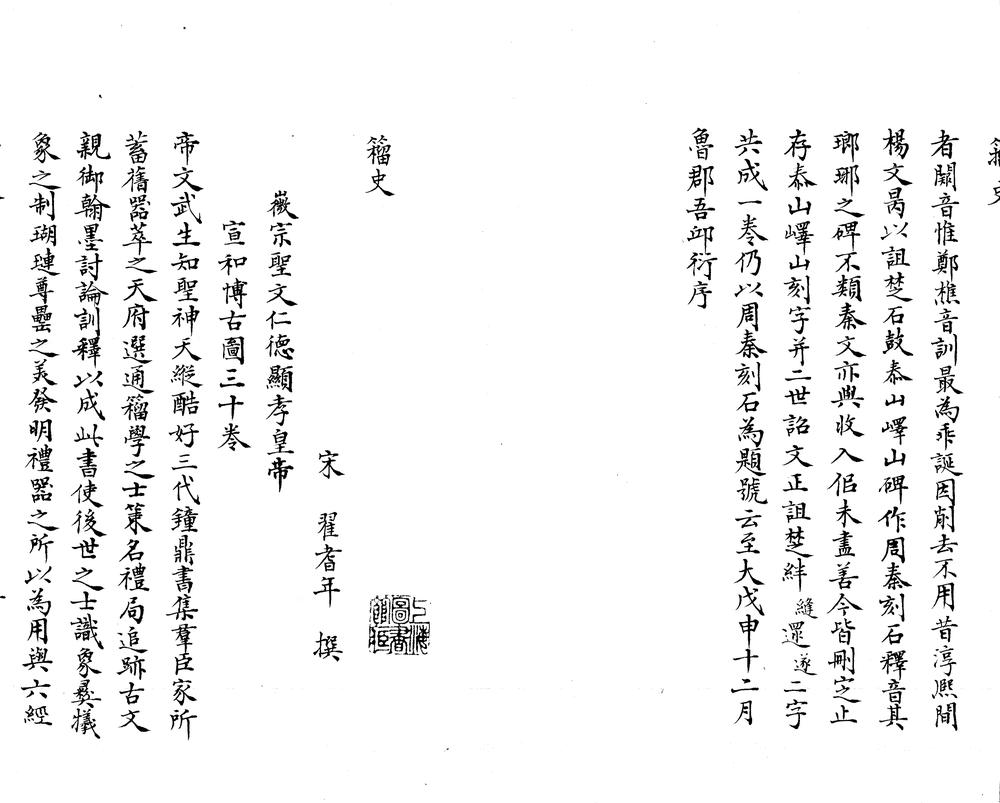 籀史
者闕音惟鄭樵音訓最為乖誕因削去不用昔淳熈間
楊文昺以詛楚石鼓泰山嶧山碑作周秦刻石釋音其
瑯琊之碑不類秦文亦與收入但未盡善今皆刪定止
存泰山嶧山刻字并二世詔文正詛楚絆縫還遂二字
共成一卷仍以周秦刻石為題號云至大戊申十二月
魯郡吾邱衍序
籀史
宋 翟耆年 撰
徽宗聖文仁德顯孝皇帝
宣和博古圖三十卷
帝文武生知聖神天縱酷好三代鐘鼎書集羣臣家所
蓄舊器萃之天府選通籀學之士策名禮局追跡古文
親御翰墨討論訓釋以成此書使後世之士識象彝犧
象之制瑚璉尊罍之美發明禮器之所以為用與六經